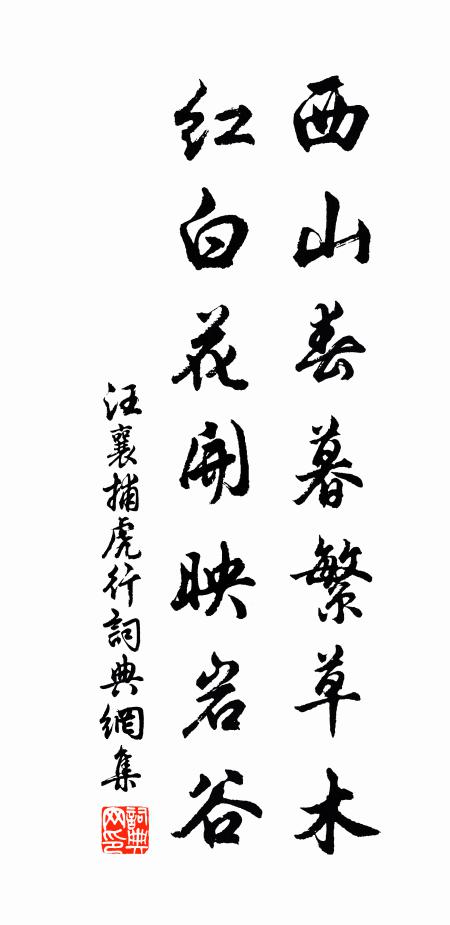 西山春暮繁草木
红白花開映岩谷
汪襄捕虎行詞典網集
詞典网印